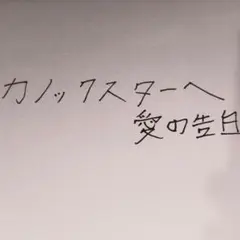 カノックスターへ
愛の告白